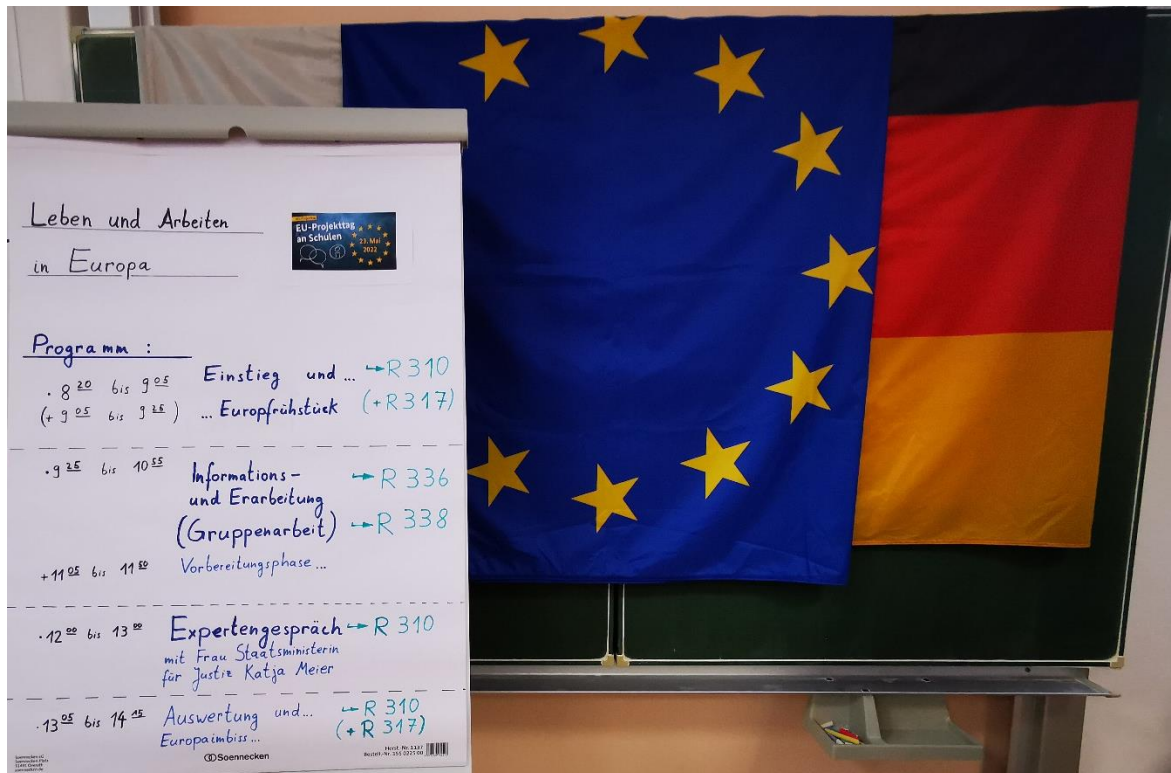 Leben und Arbeiten
in Europa
EU-Projekttag
an Schulen
23. Mai
2022
Programm :
· 8 20 bis 9 05 Einstieg und ... → R 310
(+ 9 05 bis 9 25 ) ... Europfrühstück (+ R 317)
· 9 25 bis 10 55 Informations-
und Erarbeitung → R 336
(Gruppenarbeit) → R 338
+ 11 05 bis 11 50 Vorbereitungsphase ...
· 12 00 bis 13 00 Expertengespräch → R 310
mit Frau Staatsministerin
für Justiz Katja Meier
· 13 05 bis 14 15 Auswertung und ... → R 310
Europaimbiss ... (+ R 317)
Soennecken